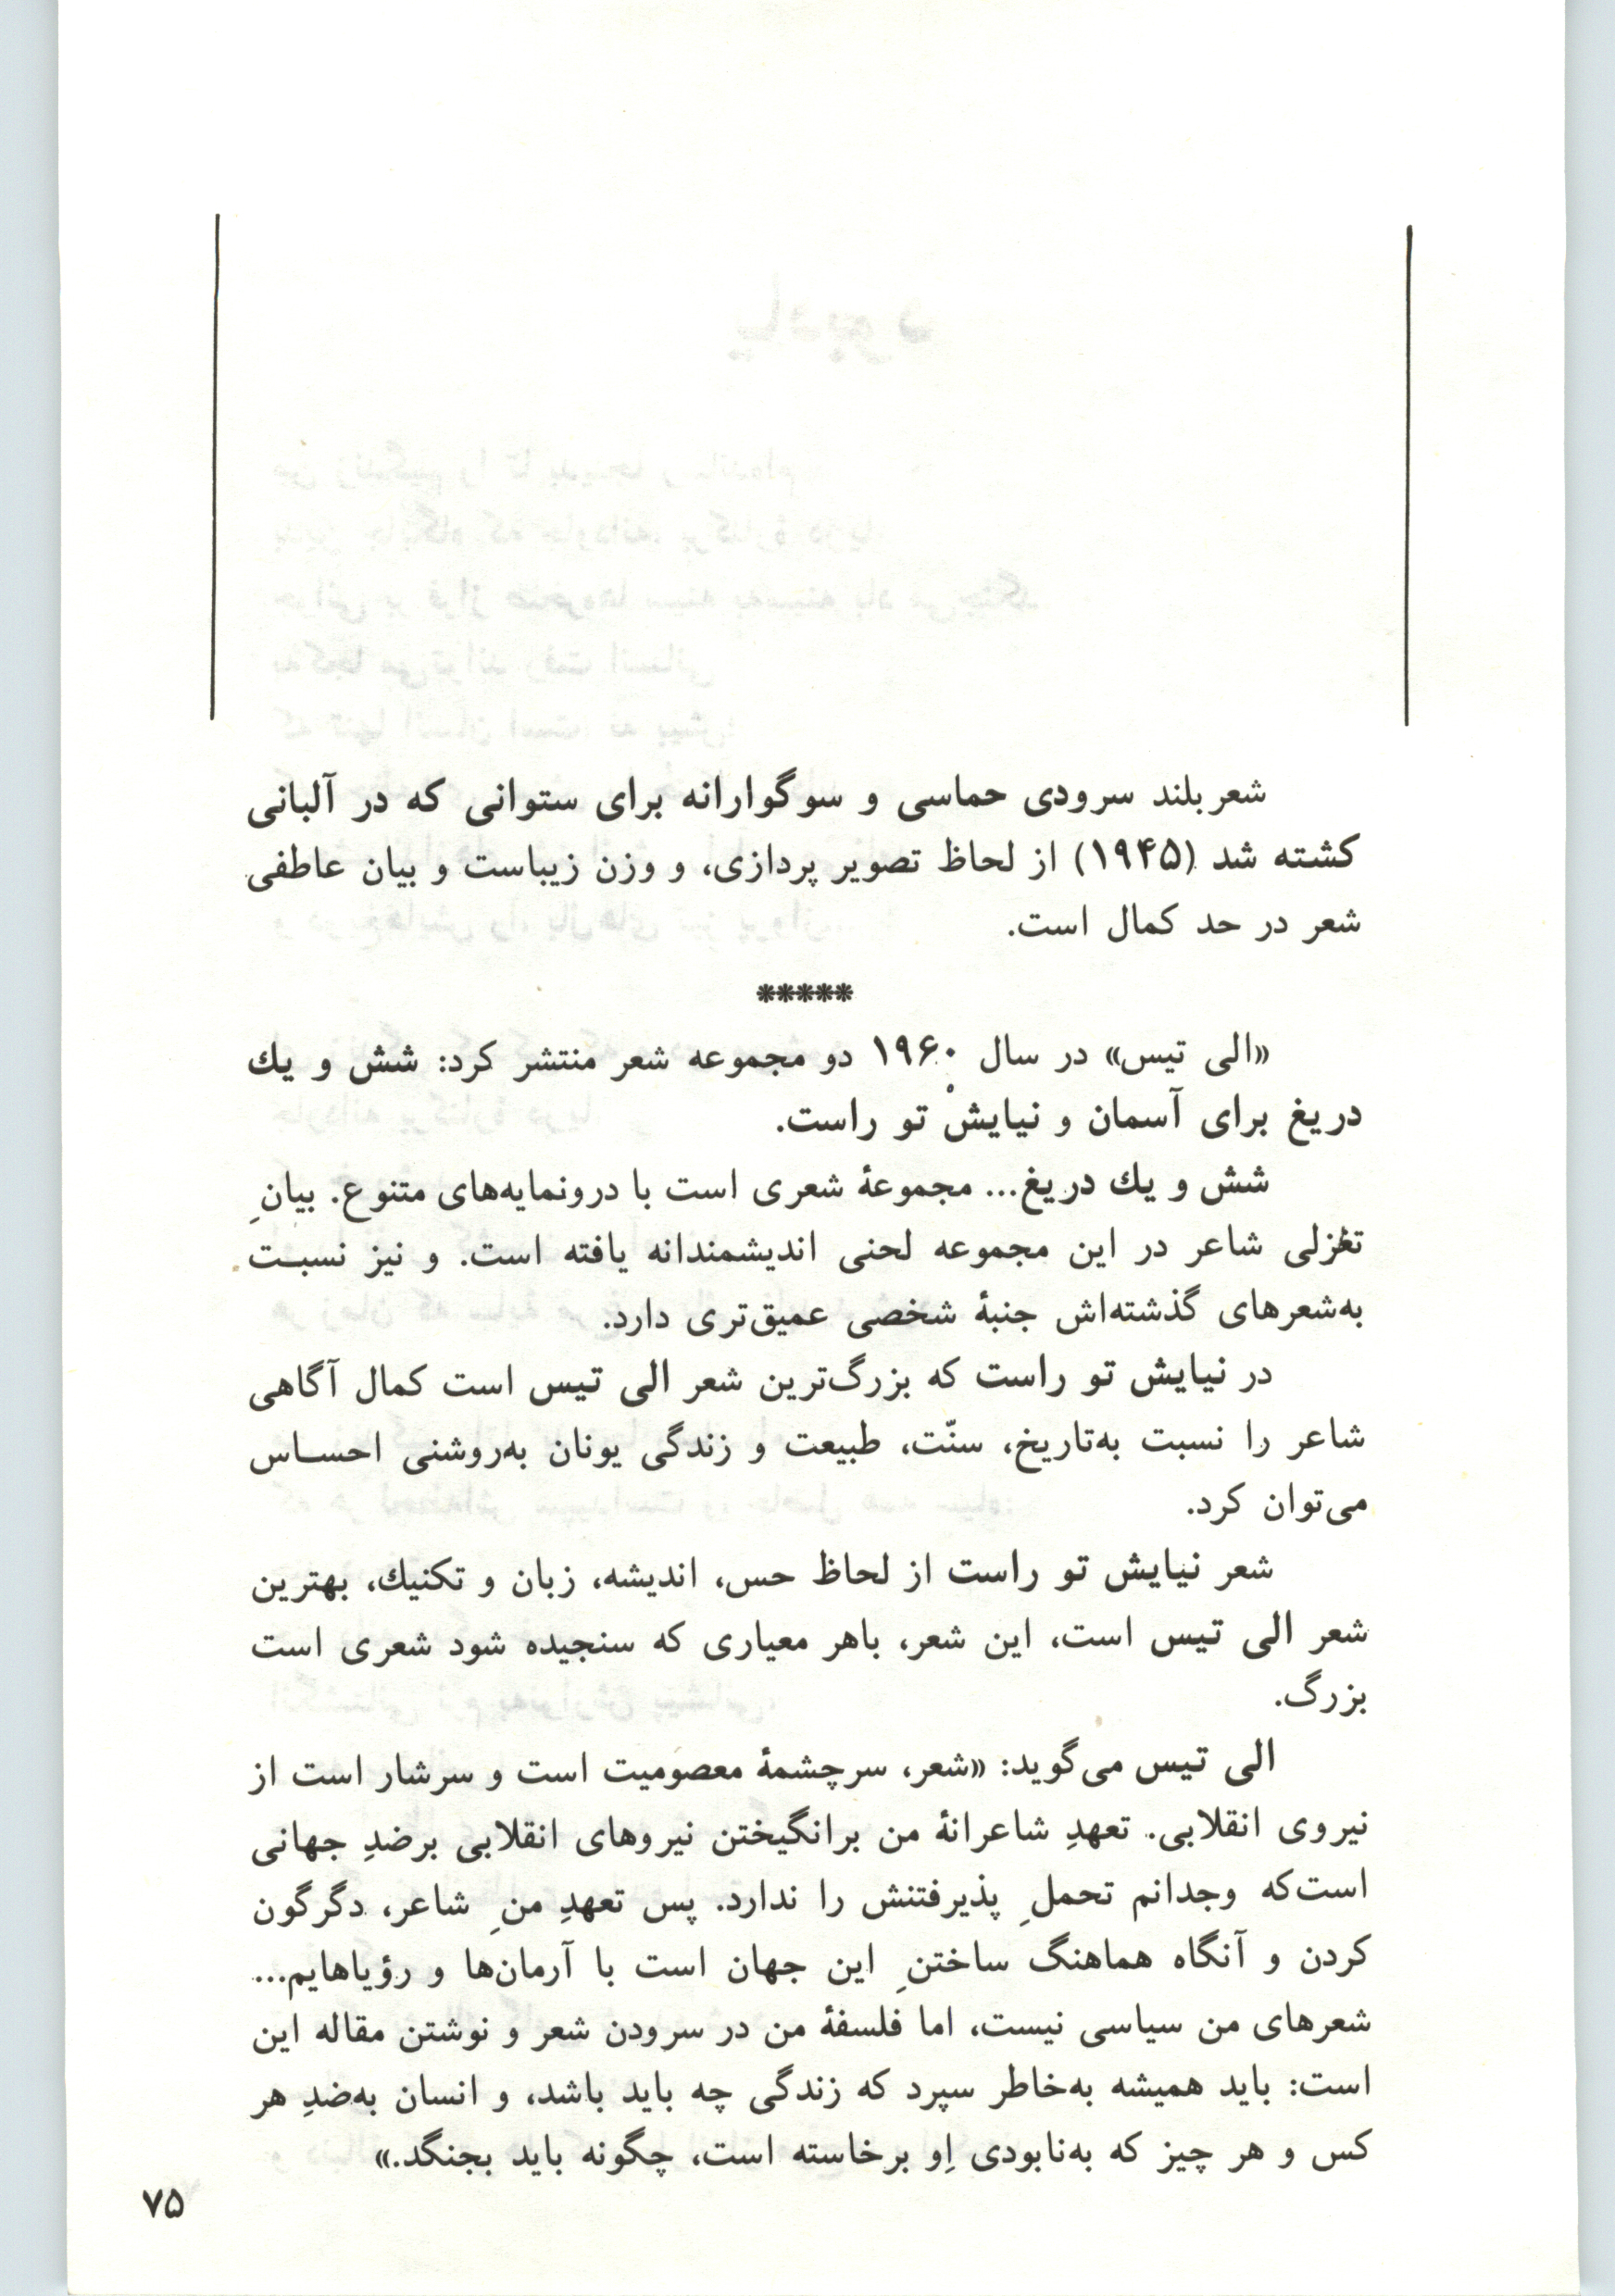 شعر بلند سرودی حماسی و سوگوارانه برای ستوانی که در آلبانی
کشته شد (۱۹۴۵) از لحاظ تصویر پردازی، و وزن زیباست و بیان عاطفی
شعر در حد کمال است.
*****
«الی تیس» در سال ۱۹۶۰ دو مجموعه شعر منتشر کرد: شش و یك
دریغ برای آسمان و نیایشْ تو راست.
شش و یك دریغ... مجموعهٔ شعری است با درونمایه‌های متنوع. بیانِ
تغزلی شاعر در این مجموعه لحنی اندیشمندانه یافته است. و نیز نسبـت
به‌شعرهای گذشته‌اش جنبهٔ شخصی عمیق‌تری دارد.
در نیایش تو راست که بزرگ‌ترین شعر الی تیس است کمال آگاهی
شاعر را نسبت به‌تاریخ، سنّت، طبیعت و زندگی یونان به‌روشنی احسـاس
می‌توان کرد.
شعر نیایش تو راست از لحاظ حس، اندیشه، زبان و تکنیك، بهترین
شعر الی تیس است، این شعر، باهر معیاری که سنجیده شود شعری است
بزرگ.
الی تیس می‌گوید: «شعر، سرچشمهٔ معصومیت است و سرشار است از
نیروی انقلابی. تعهدِ شاعرانهٔ من برانگیختن نیروهای انقلابی برضدِ جهانی
است‌که وجدانم تحملِ پذیرفتنش را ندارد. پس تعهدِ منِ شاعر، دگرگون
کردن و آنگاه هماهنگ ساختنِ این جهان است با آرمان‌ها و رؤیاهایم...
شعرهای من سیاسی نیست، اما فلسفهٔ من در سرودن شعر و نوشتن مقاله این
است: باید همیشه به‌خاطر سپرد که زندگی چه باید باشد، و انسان به‌ضدِ هر
کس و هر چیز که به‌نابودی اِو برخاسته است، چگونه باید بجنگد.»
۷۵